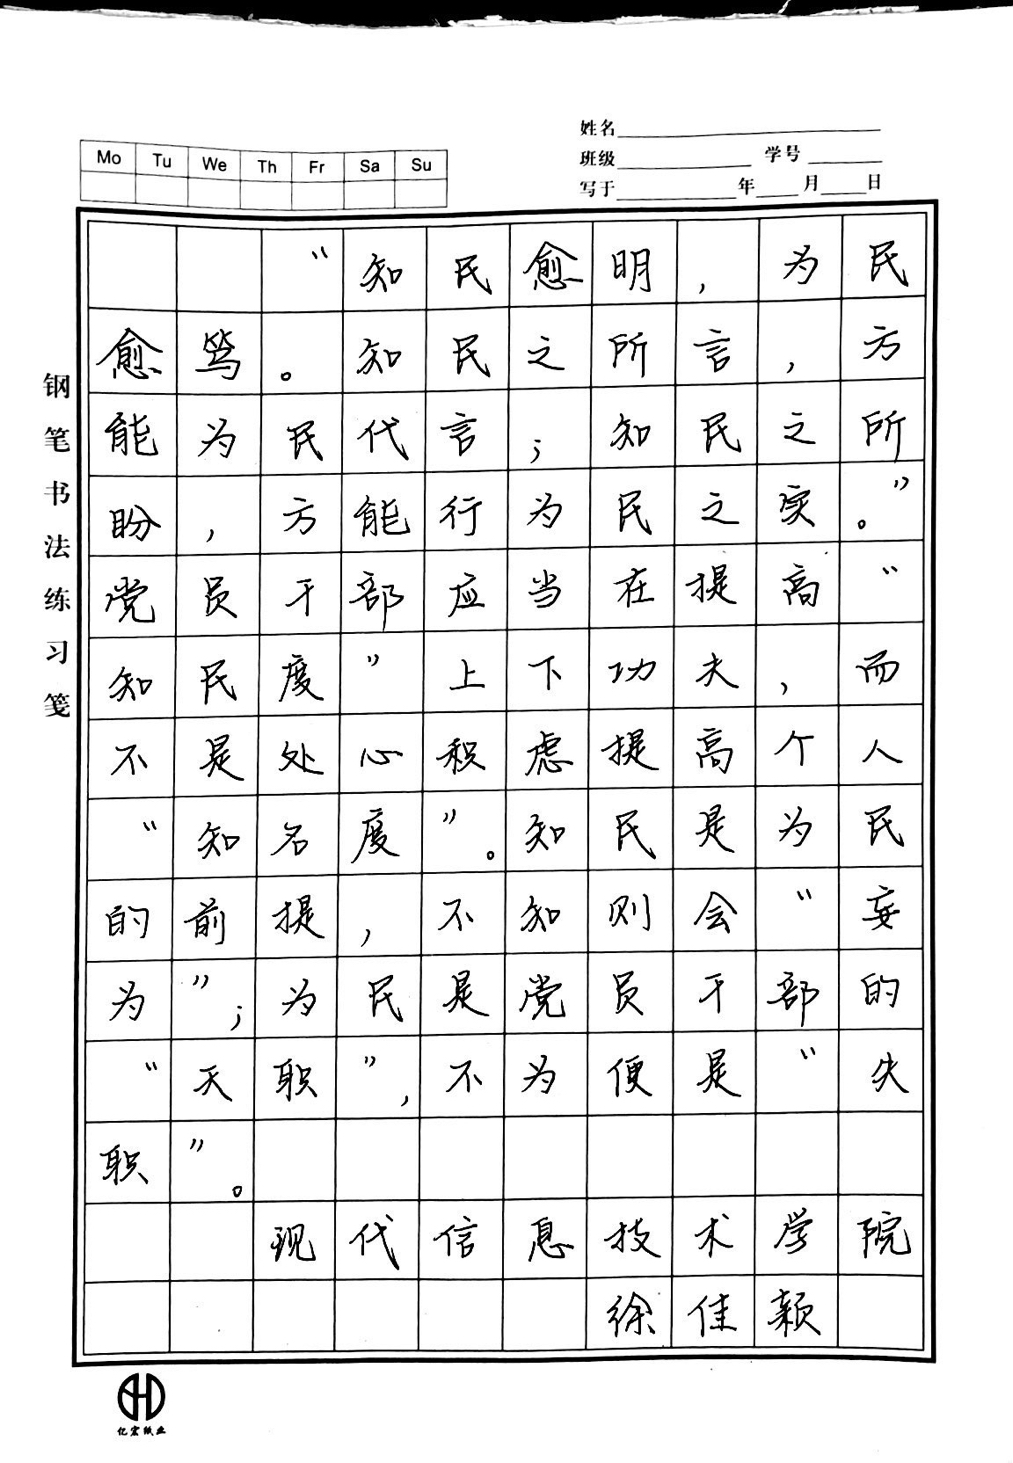 姓名
班级 学号
写于 年 月 日
Mo Tu We Th Fr Sa Su
钢笔书法练习笺
“知民愈明，为民
愈笃。知民之所言，方
能为民代言；知民之所
盼，方能行为民之实。”
党员干部应当在提高“
知民度”上下功夫，而
不是处心积虑提高个人
“知名度”。知民是为民
的前提，不知则会“妄
为”；为民是党员干部的
“天职”，不为便是“失
职”。
现代信息技术学院
徐佳颖
亿宏纸业